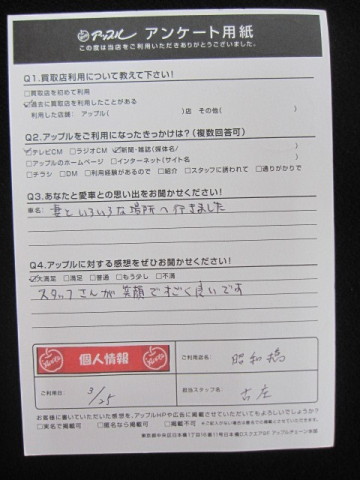 アップル アンケート用紙
この度は当店をご利用いただきありがとうございました。
Q1.買取店利用について教えて下さい!
□買取店を初めて利用
☑過去に買取店を利用したことがある
利用した店舗: アップル( )店 その他( )
Q2.アップルをご利用になったきっかけは?(複数回答可)
☑テレビCM □ラジオCM ☑新聞・雑誌(媒体名/ )
□アップルのホームページ □インターネット(サイト名 )
□チラシ □DM □利用経験があるので □紹介 □スタッフに誘われて □通りがかりで
Q3.あなたと愛車との思い出をお聞かせください!
車名: 妻といろいろな場所へ行きました
Q4.アップルに対する感想をぜひお聞かせください!
☑大満足 □満足 □普通 □もう少し □不満
スタッフさんが笑顔ですごく良いです
個人情報
ご利用店名: 昭和橋
ご利用日: 3/25
担当スタッフ名: 古庄
お客様に書いていただいた感想を、アップルHPや広告に掲載させていただいてもよろしいでしょうか?
□実名で掲載可 □匿名なら掲載可 □掲載不可